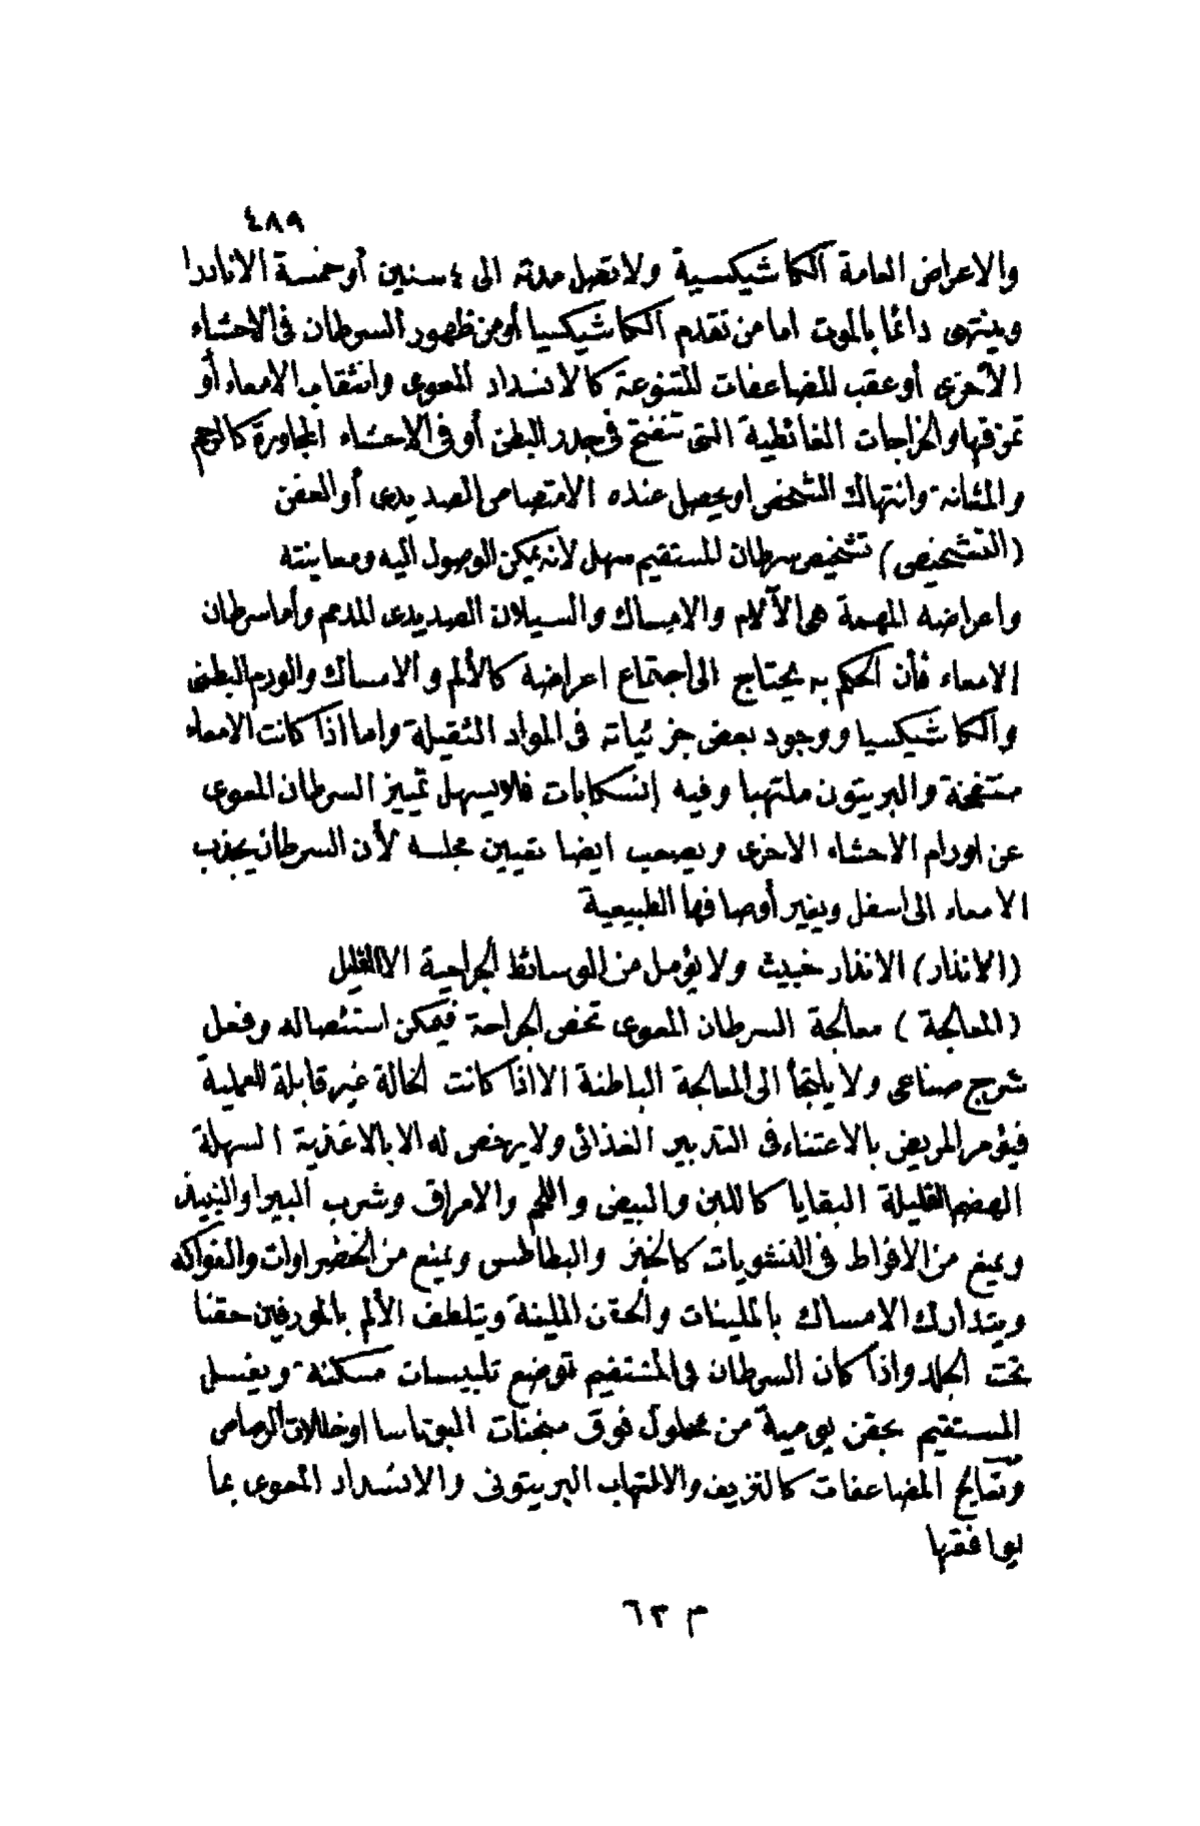 ٤٨٩
والاعراض العامة الكاشيكسية ولا تصل مدته الى ٤ سنين أو خمسة الا نادرا
وينتهى دائما بالموت اما من تقدم الكاشيكسيا أو من ظهور السرطان فى الاحشاء
الأخرى أو عقب المضاعفات المتنوعة كالانسداد المعوى وانثقاب الامعاء أو
تمزقها والخراجات الغائطية التى تنفتح فى جدر البطن أو فى الاحشاء المجاورة كالرحم
والمثانة وانتهاك الشخص او يحصل عنده الامتصاص الصديدى أو العفن
(التشخيص) تشخيص سرطان المستقيم سهل لانه يمكن الوصول اليه ومعاينته
واعراضه المهمة هى الآلام والامساك والسيلان الصديدى المدمم وأما سرطان
الامعاء فأن الحكم به يحتاج الى اجتماع اعراضه كالألم والامساك والورم البطنى
والكاشيكسيا ووجود بعض جزئياته فى المواد الثقيلة واما اذا كانت الامعاء
منتفخة والبريتون ملتهبا وفيه إنسكابات فلا يسهل تمييز السرطان المعوى
عن اورام الاحشاء الاخرى ويصعب ايضا تعيين مجلسه لأن السرطان يجذب
الامعاء الى اسفل ويغير أوصافها الطبيعية
(الانذار) الانذار خبيث ولا يؤمل من الوسائط الجراحية الا القليل
(المعالجة) معالجة السرطان المعوى تخص الجراحة فيمكن استئصاله وفعل
شرج صناعى ولا يلتجأ الى المعالجة الباطنة الا اذا كانت الحالة غير قابلة للعملية
فيؤمر المريض بالاعتناء فى التدبير الغذائى ولا يرخص له الا بالاغذية السهلة
الهضم القليلة البقايا كاللبن والبيض واللحم والامراق وشرب البيرا والنبيذ
ويمنع من الافراط فى النشويات كالخبز والبطاطس ويمنع من الخضراوات والفواكه
ويتدارك الامساك بالملينات والحقن الملينة ويتلطف الألم بالمورفين حقنا
تحت الجلد واذا كان السرطان فى المستقيم توضع تلبيسات مسكنة ويغسل
المستقيم بحقن يومية من محلول فوق منجنات البوتاسا او خلات الرصاص
وتعالج المضاعفات كالنزيف والالتهاب البريتونى والانسداد المعوى بما
يوافقها
م ٦٢